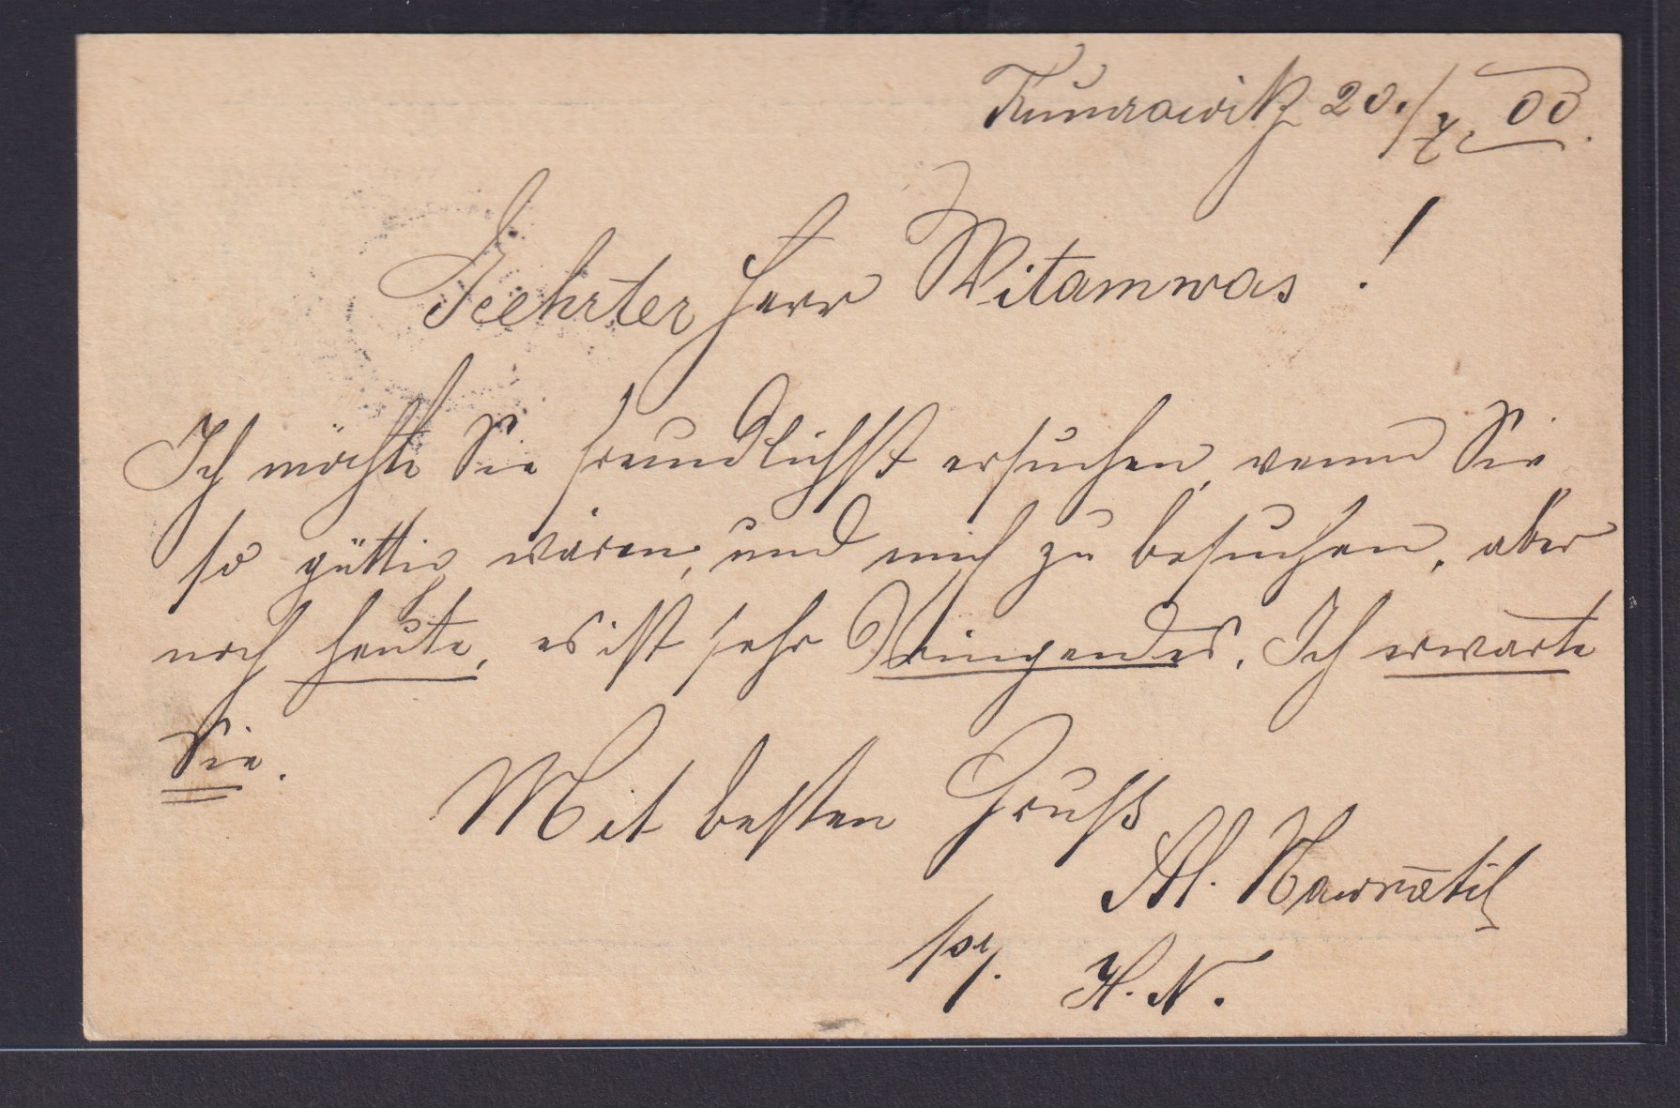 Kunrowitz 20./7. 00.
Geehrter Herr Witamwas !
Ich möchte Sie freundlichst ersuchen, wenn Sie
so güttig wären, und mich zu besuchen, aber
noch heute, es ist sehr Dringendes. Ich erwarte
Sie.
Mit besten Gruß
Al. Nawratil
H. N.